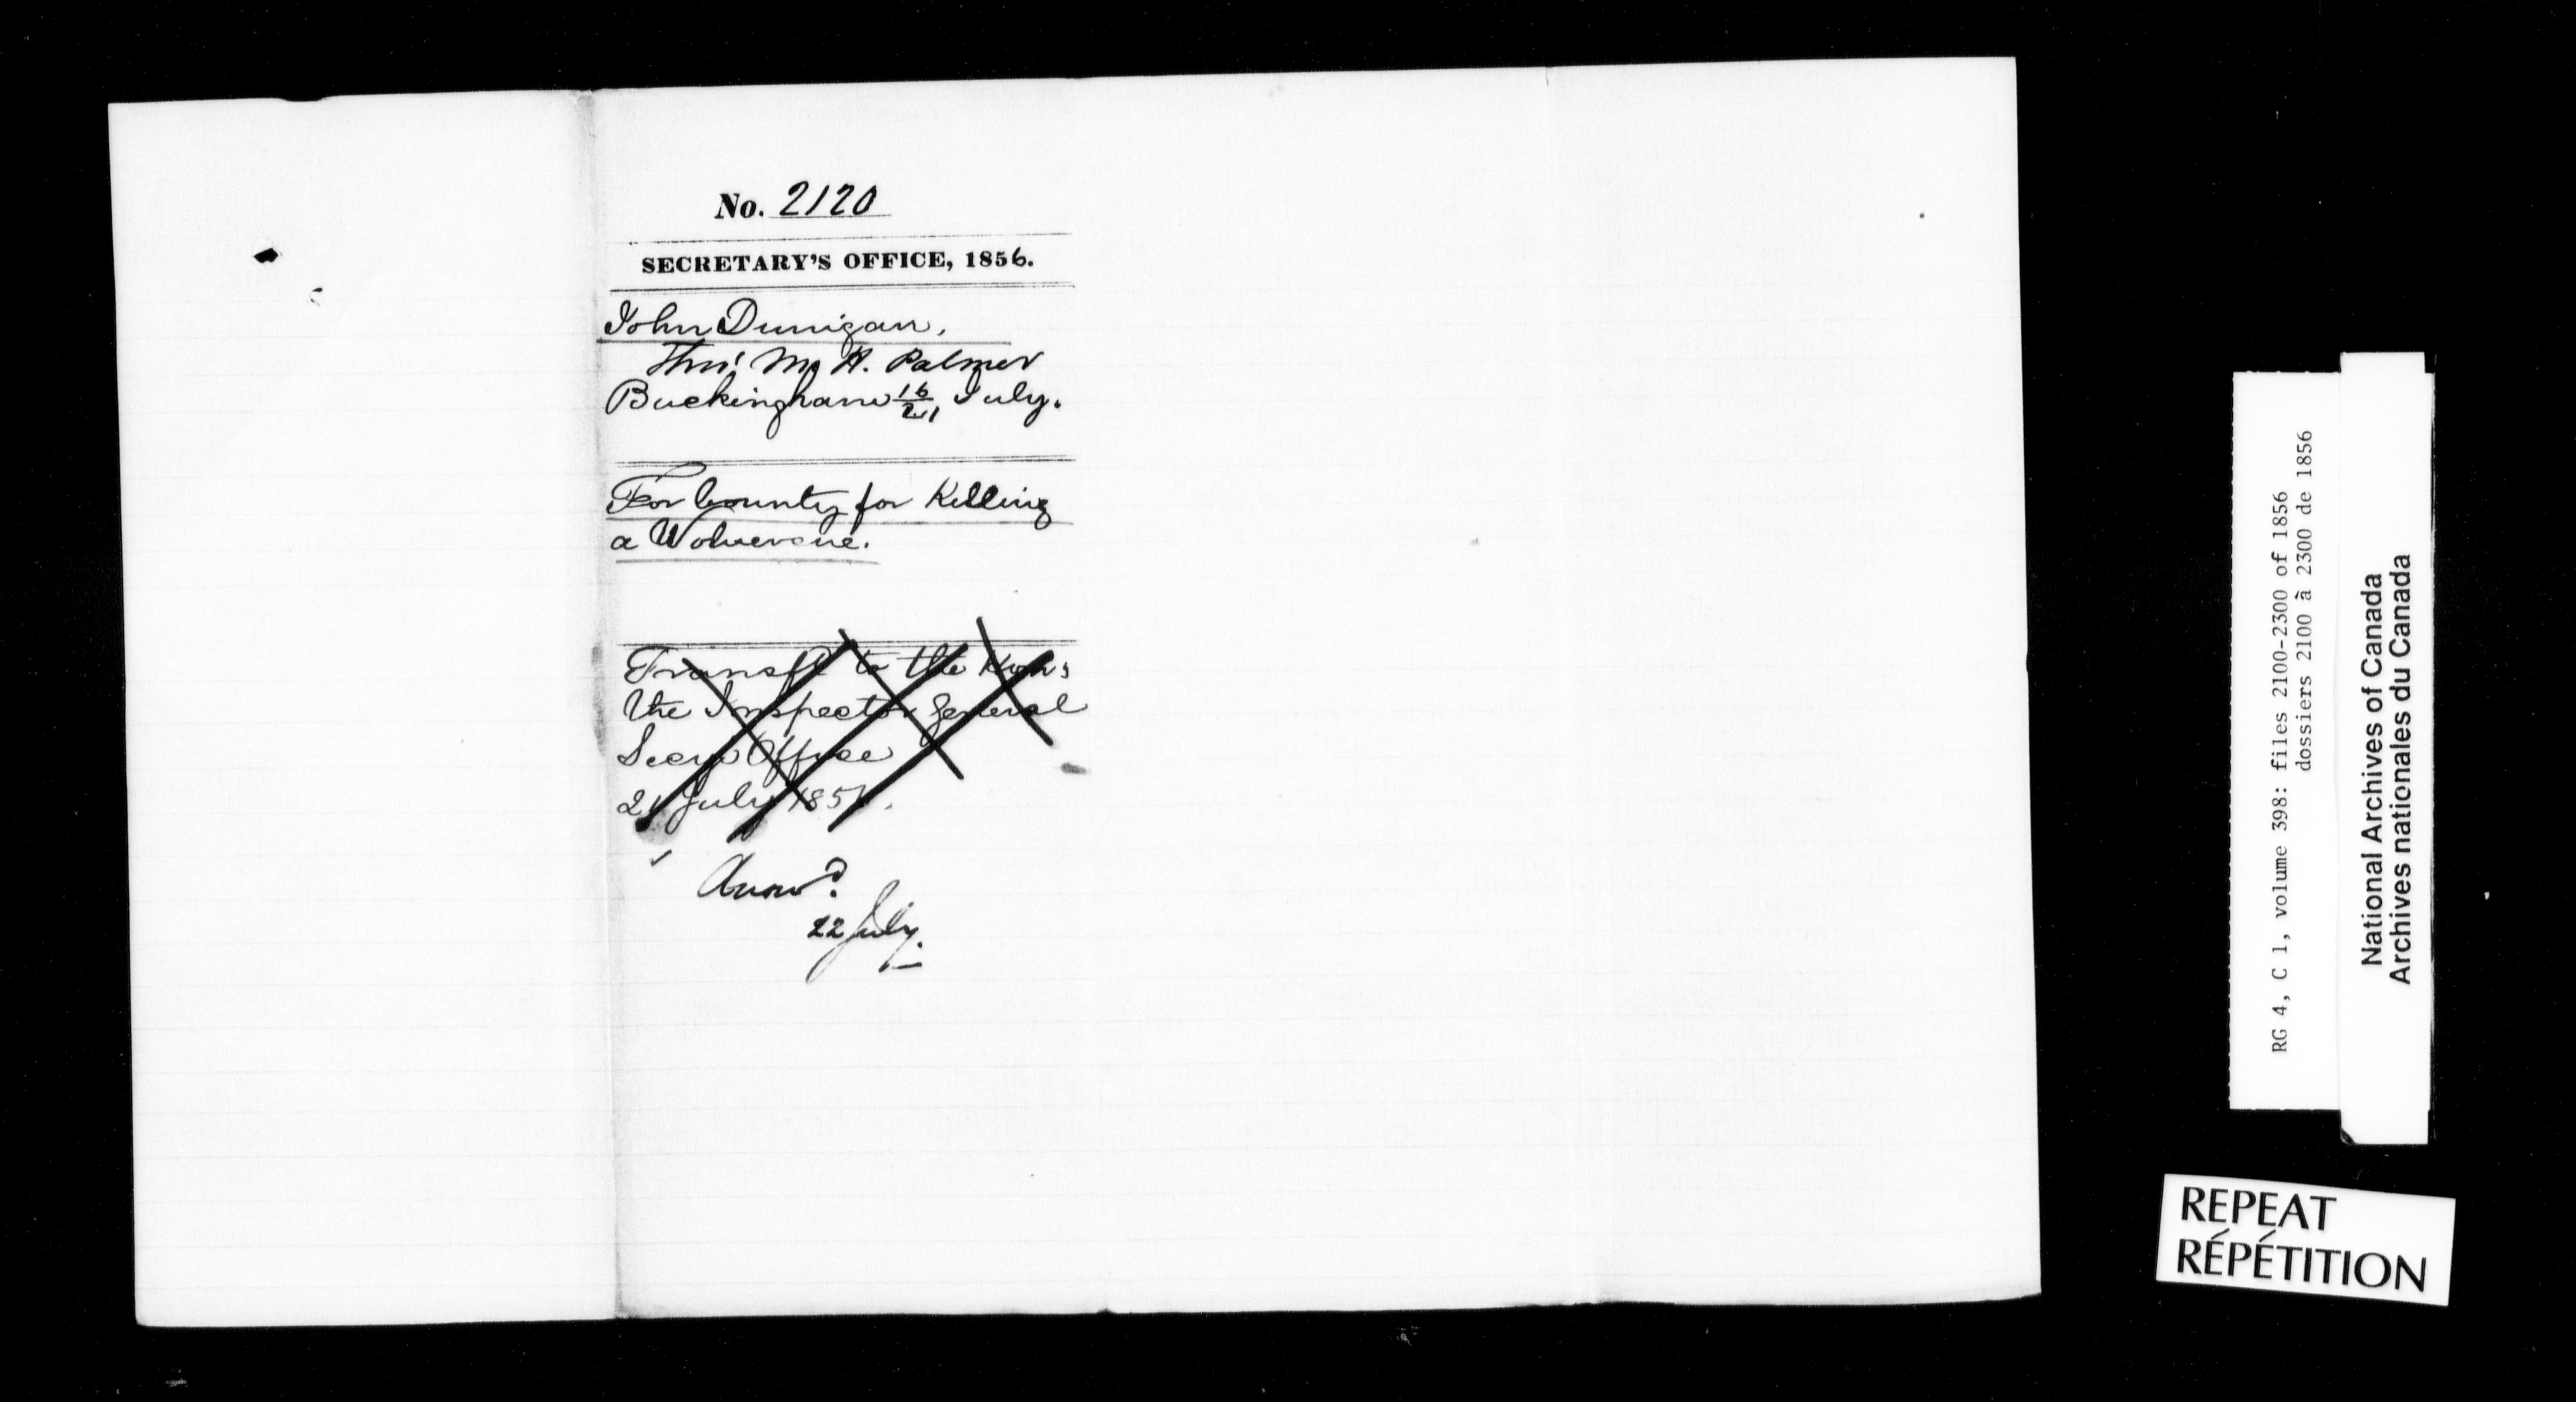 No. 2120
SECRETARY'S OFFICE, 1856.
John Dunigan,
Thro' Mr H. Palmer
Buckingham 16/21 July.
For bounty for Killing
a Wolverene.
Transfd to the Hon:
the Inspector General
Secys Office
21 July 1856.
Answd.
22 July.
RG 4, C 1, volume 398: files 2100-2300 of 1856
dossiers 2100 à 2300 de 1856
National Archives of Canada
Archives nationales du Canada
REPEAT
RÉPÉTITION